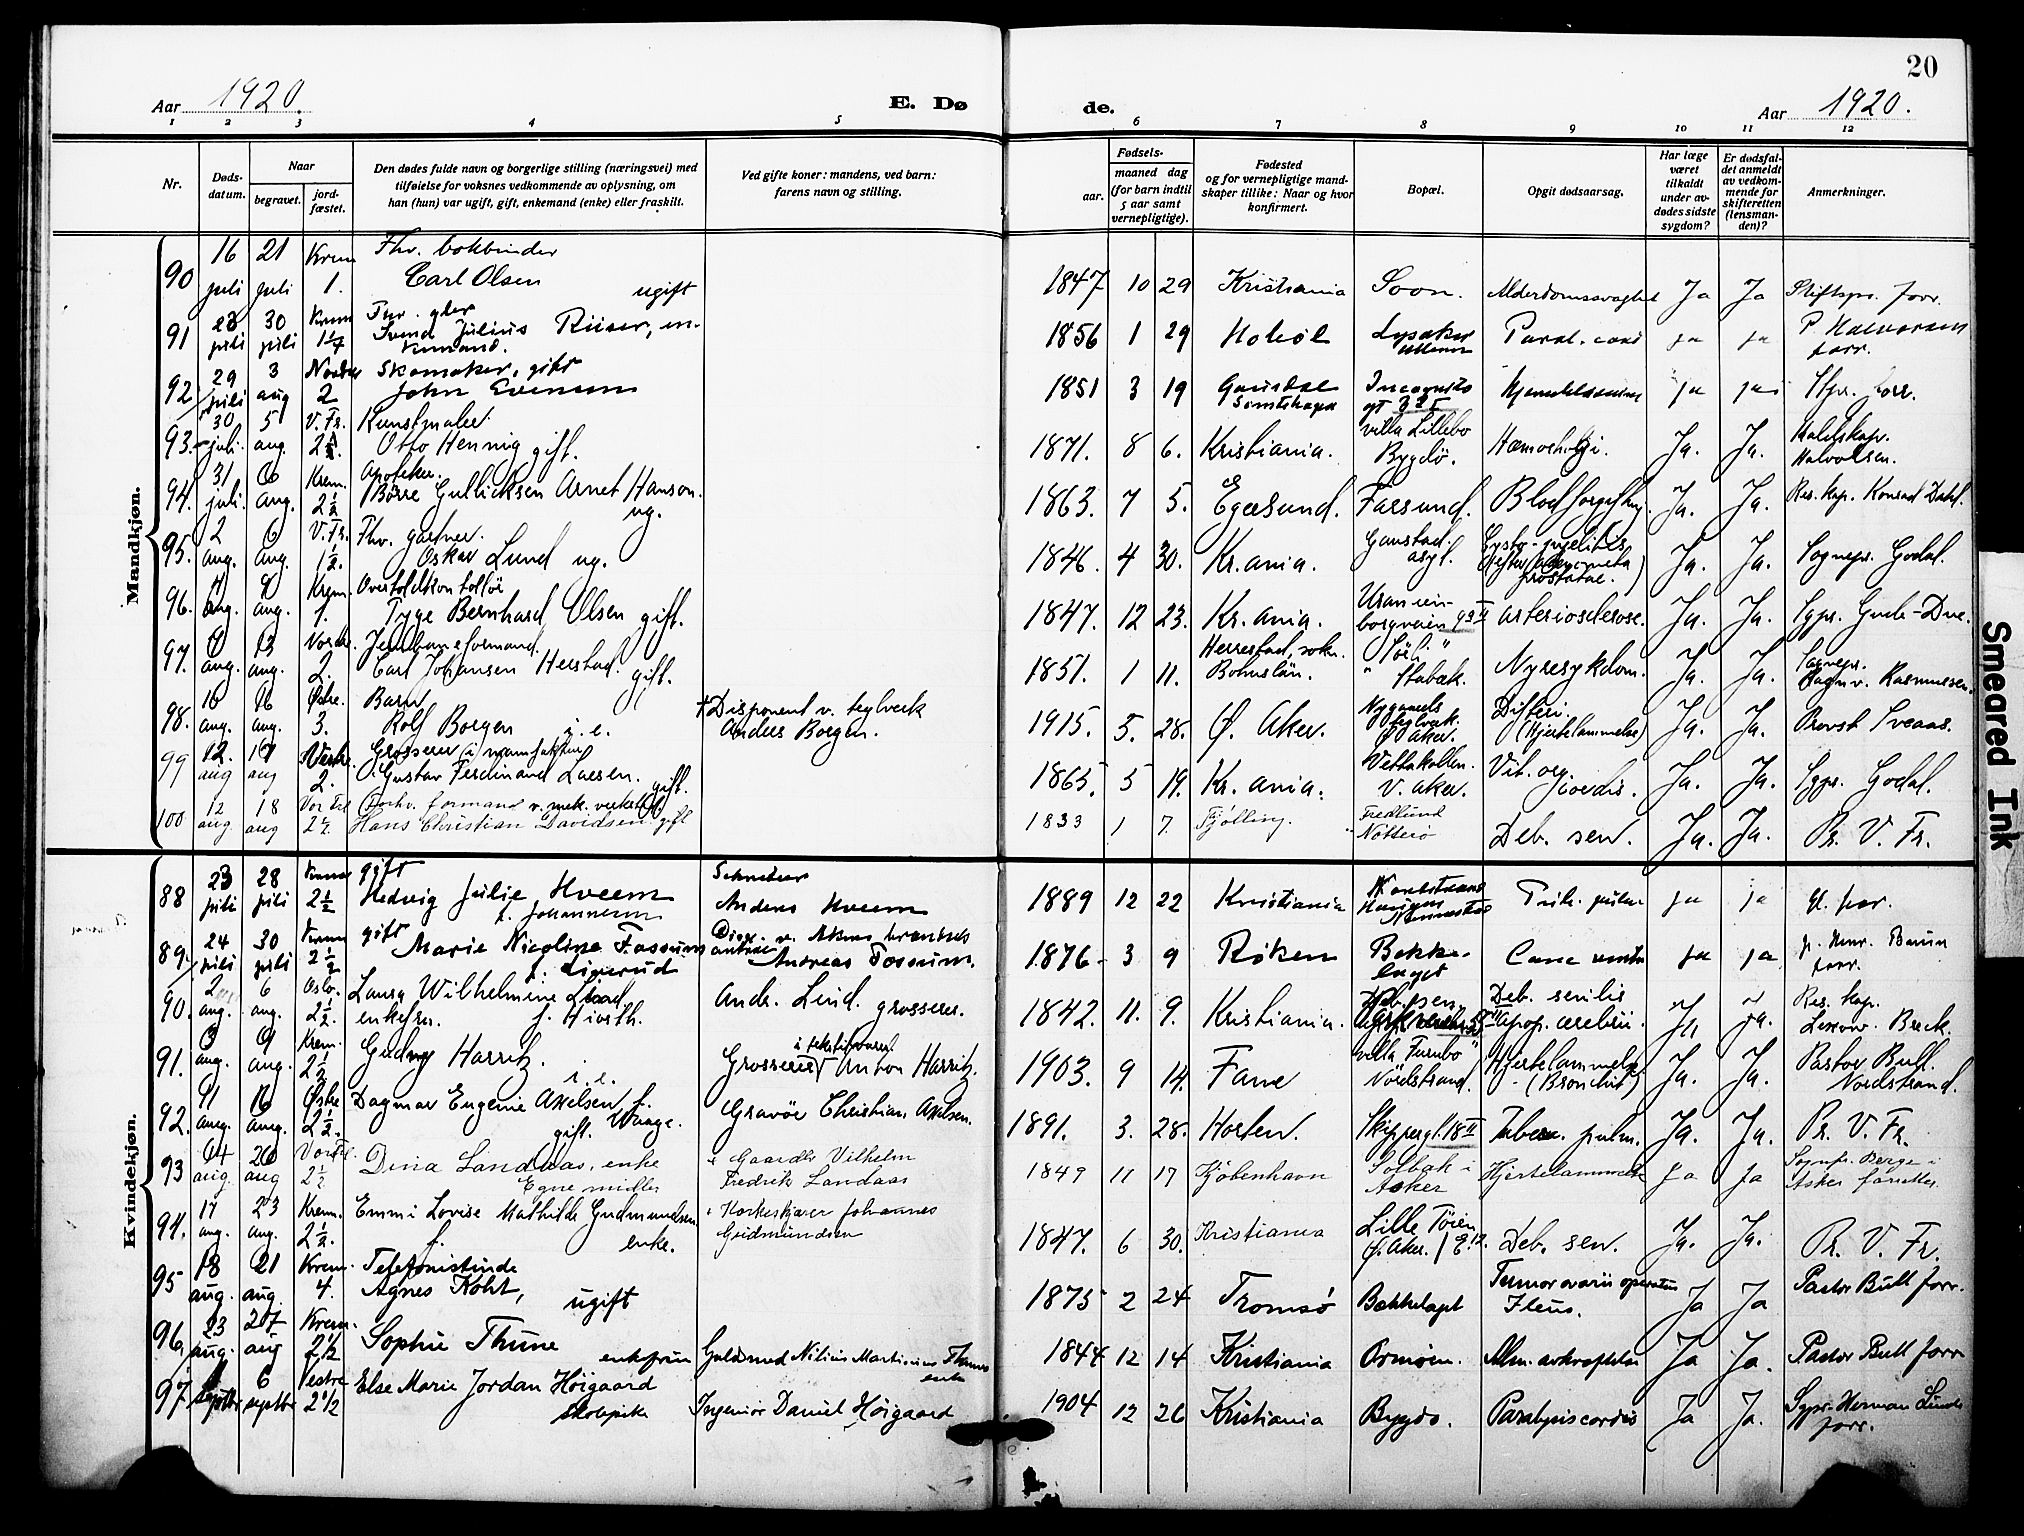 20
Aar 1920.
E. Dø
de.
Aar 1920.
1 2 3 4 5 6 7 8 9 10 11 12
Nr.
Døds-
datum.
Naar
begravet.
jord-
fæstet.
Den dødes fulde navn og borgerlige stilling (næringsvei) med
tilføielse for voksnes vedkommende av oplysning, om
han (hun) var ugift, gift, enkemand (enke) eller fraskilt.
Ved gifte koner: mandens, ved barn:
farens navn og stilling.
Fødsels-
aar.
maaned dag
(for barn indtil
5 aar samt
vernepligtige).
Fødested
og for vernepligtige mand-
skaper tillike: Naar og hvor
konfirmert.
Bopæl.
Opgit dødsaarsag.
Har læge
været
tilkaldt
under av-
dødes sidste
sygdom?
Er dødsfal-
det anmeldt
av vedkom-
mende for
skifteretten
(lensman-
den)?
Anmerkninger.
Mandkjøn.
90 16 juli 21 juli Krem 1. Fhv. bokbinder
Carl Olsen ugift 1847 10 29 Kristiania Soon. Alderdomssvaghet Ja Ja Stiftspr. forr.
91 23 juli 30 juli Krem Fhv.
Svend Julius Riiser, en-
kemand. 1856 1 29 Hobøl Lysaker Ullern Paral. cord ja ja P. Halvorsen
forr.
92 29 juli 3 aug Nordre 2 Skomaker, gift
John Evensen 1851 3 19 Gausdal Incognito gt ja ja forr.
93. 30 juli. 5 aug. V. Fr. Kunstmaler
Otto Hennig gift. 1871. 8 6. Kristiania. Villa Lillebo
Bygdö. Ja. Ja. Halvorsen.
94. 31 juli. 6 aug. Krem. 2 1/2 Apoteker.
Børre Gullicksen Arnet Hanson.
ug. 1863. 7 5. Egersund. Farsund. Blodforgiftng. Ja. Ja. Res. kap. Konrad Dahl.
95. 2 aug. 6 aug. V. Fr. 1 1/2. Fhv. gartner.
Oskar Lund ug. 1846. 4 30. Kr.ania. Gaustad
asyl. prostatae. Ja. Ja. Sognepr. Godal.
96. 4 aug. 9 aug. Krem. 1. Overtoldkontollør
Tyge Bernhard Olsen gift. 1847. 12 23. Kr.ania. Uranien-
borgveien 9 II arteriosclerose. Ja. Ja. Sgpr. Gude-Due.
97. 9 aug. 13 aug. Nordre. 2. Jernbaneformand.
Carl Johansen Herstad. gift. 1851. 1 11. Herrestad, sokn.
Bohuslän. "Sörli"
Stabæk. Nyresykdom. Ja. Ja. Sognepr.
Rasmussen.
98. 10 aug. 16 aug. Østre. 3. Barn
Rolf Borgen Disponent v. teglverk
Anders Borgen. 1915. 5. 28. Ø. Aker. Nygaards
teglverk.
Ø. aker. Difteri.
(Hjertelammelse) Ja. Ja. Provst Sveaas.
99 12. aug 17 aug Vestre. 2. Grosserer (i manufaktur)
Gustav Ferdinand Larsen. gift. 1865. 5 19. Kr. ania. Vettakollen.
V. aker. Vit. org.
cordis. Ja. Ja. Sgpr. Godal.
100 12 aug 18 aug Vor Frl Forhv. formand v. mek. verksted.
Hans Christian Davidsen gift 1833 1 7. Tjølling. Fredlund
Nøtterø Deb. sen. Ja. Ja. Pr. V. Fr.
Kvindekjøn.
88 23 juli 28 juli Krem 2 1/2 gift
Hedvig Julie Hveem
f. Johannesen Anders Hveem 1889 12 22 Kristiania ja ja forr.
89. 24 juli 30 juli Krem 2 1/2 gift
Marie Nicoline Fossum
Andreas Fossum. 1876 3 9 Røken Bekke-
laget Canc ja ja forr.
90. 2 aug. 6 aug. Oslo. 2 1/2. Laura Wilhelmine Lind
enkefru. f. Hiorth. Andr. Lind. grosserer. 1842. 11. 9. Kristiania. Deb. senilis
Apop. cerebri. Ja Ja. Res. kap.
91. aug. 9 aug. Krem. 2 1/2 Gudny Harritz. Grosserer Anton Harritz. 1903. 9 14. Fane villa
Nordstrand. Hjertelammelse
(Bronchit) Ja. Ja. Pastor Bull.
Nordstrand.
92. 11 aug. 16 aug. Østre 2 1/2. Dagmar Eugenie Axelsen f.
gift. Waage. Gravör Christian Axelsen. 1891. 3. 28. Horten. Skippergt. 18 II Tuberc. pulm. Ja. Ja. Pr. V. Fr.
93 14 aug. 20 aug Vor Fr. 2 1/2 Dina Landaas, enke
Egne midler Gaardbr Vilhelm
Fredrik Landaas 1849 11 17 Kjøbenhavn Solbak i
Asker Hjertelammelse Ja Ja Sognepr. Berge i
Asker forretter
94. 17 aug. 23 aug. Krem. 2 1/2. Emmi Lovise Mathilde Gudmundsen
f. enke. Korkeskjærer Johannes
Gudmundsen 1847. 6 30. Kristiania Lille Tøien
Ø. Aker. Deb. sen. Ja. Ja. Pr. V. Fr.
95 18 aug. 21 aug. Krem. 4. Telefonistinde
Agnes Koht,
ugift 1875 2 24 Tromsø Bækkelaget Tumor ovarii operatus
Ileus. Ja Ja Pastor Bull forr.
96. 23 aug. 27 aug Krem. 2 1/2 Sophie Thune
enkefrue Guldsmed Nilius Martinius Thune 1844 12 14 Kristiania Ormøen. Alm. avkræftelse Ja Ja. Pastor Bull forr
97. septbr 6 septbr Vestre 2 1/2 Else Marie Jordan Høigaard
skolepike Ingeniør Daniel Høigaard 1904 12 26 Kristiania Bygdø. Paralysis cordis Ja Ja. Sgpr. Herman Lunde
forr.
Smeared Ink